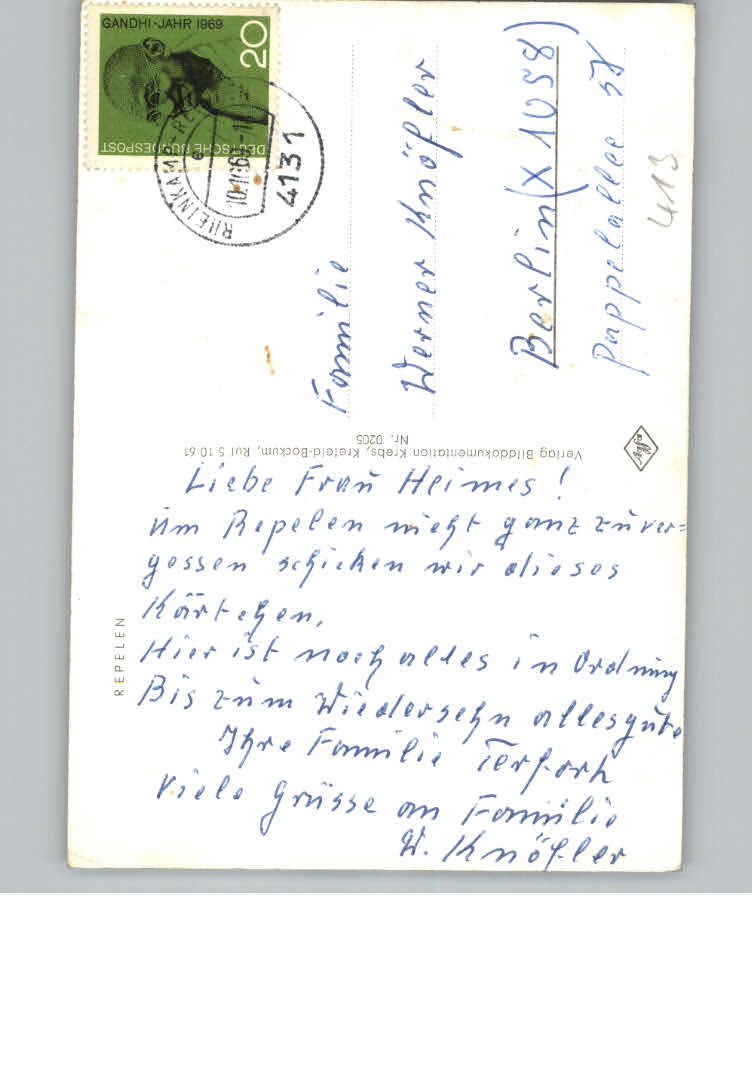 GANDHI-JAHR 1969
20
DEUTSCHE BUNDESPOST
4131
Familie
Werner Knöfler
Berlin (X 1058)
Pappelallee
413
Verlag Bilddokumentation Krebs, Krefeld-Bockum, Ruf 5 10 61
Nr. 0205
REPELEN
Liebe Frau Heimes!
Um Repelen nicht ganz zu ver=
gessen schicken wir dieses
Kärtchen,
Hier ist noch alles in Ordnung
Bis zum Wiedersehn alles gute
Ihre Familie
Viele Grüsse an Familie
W. Knöfler